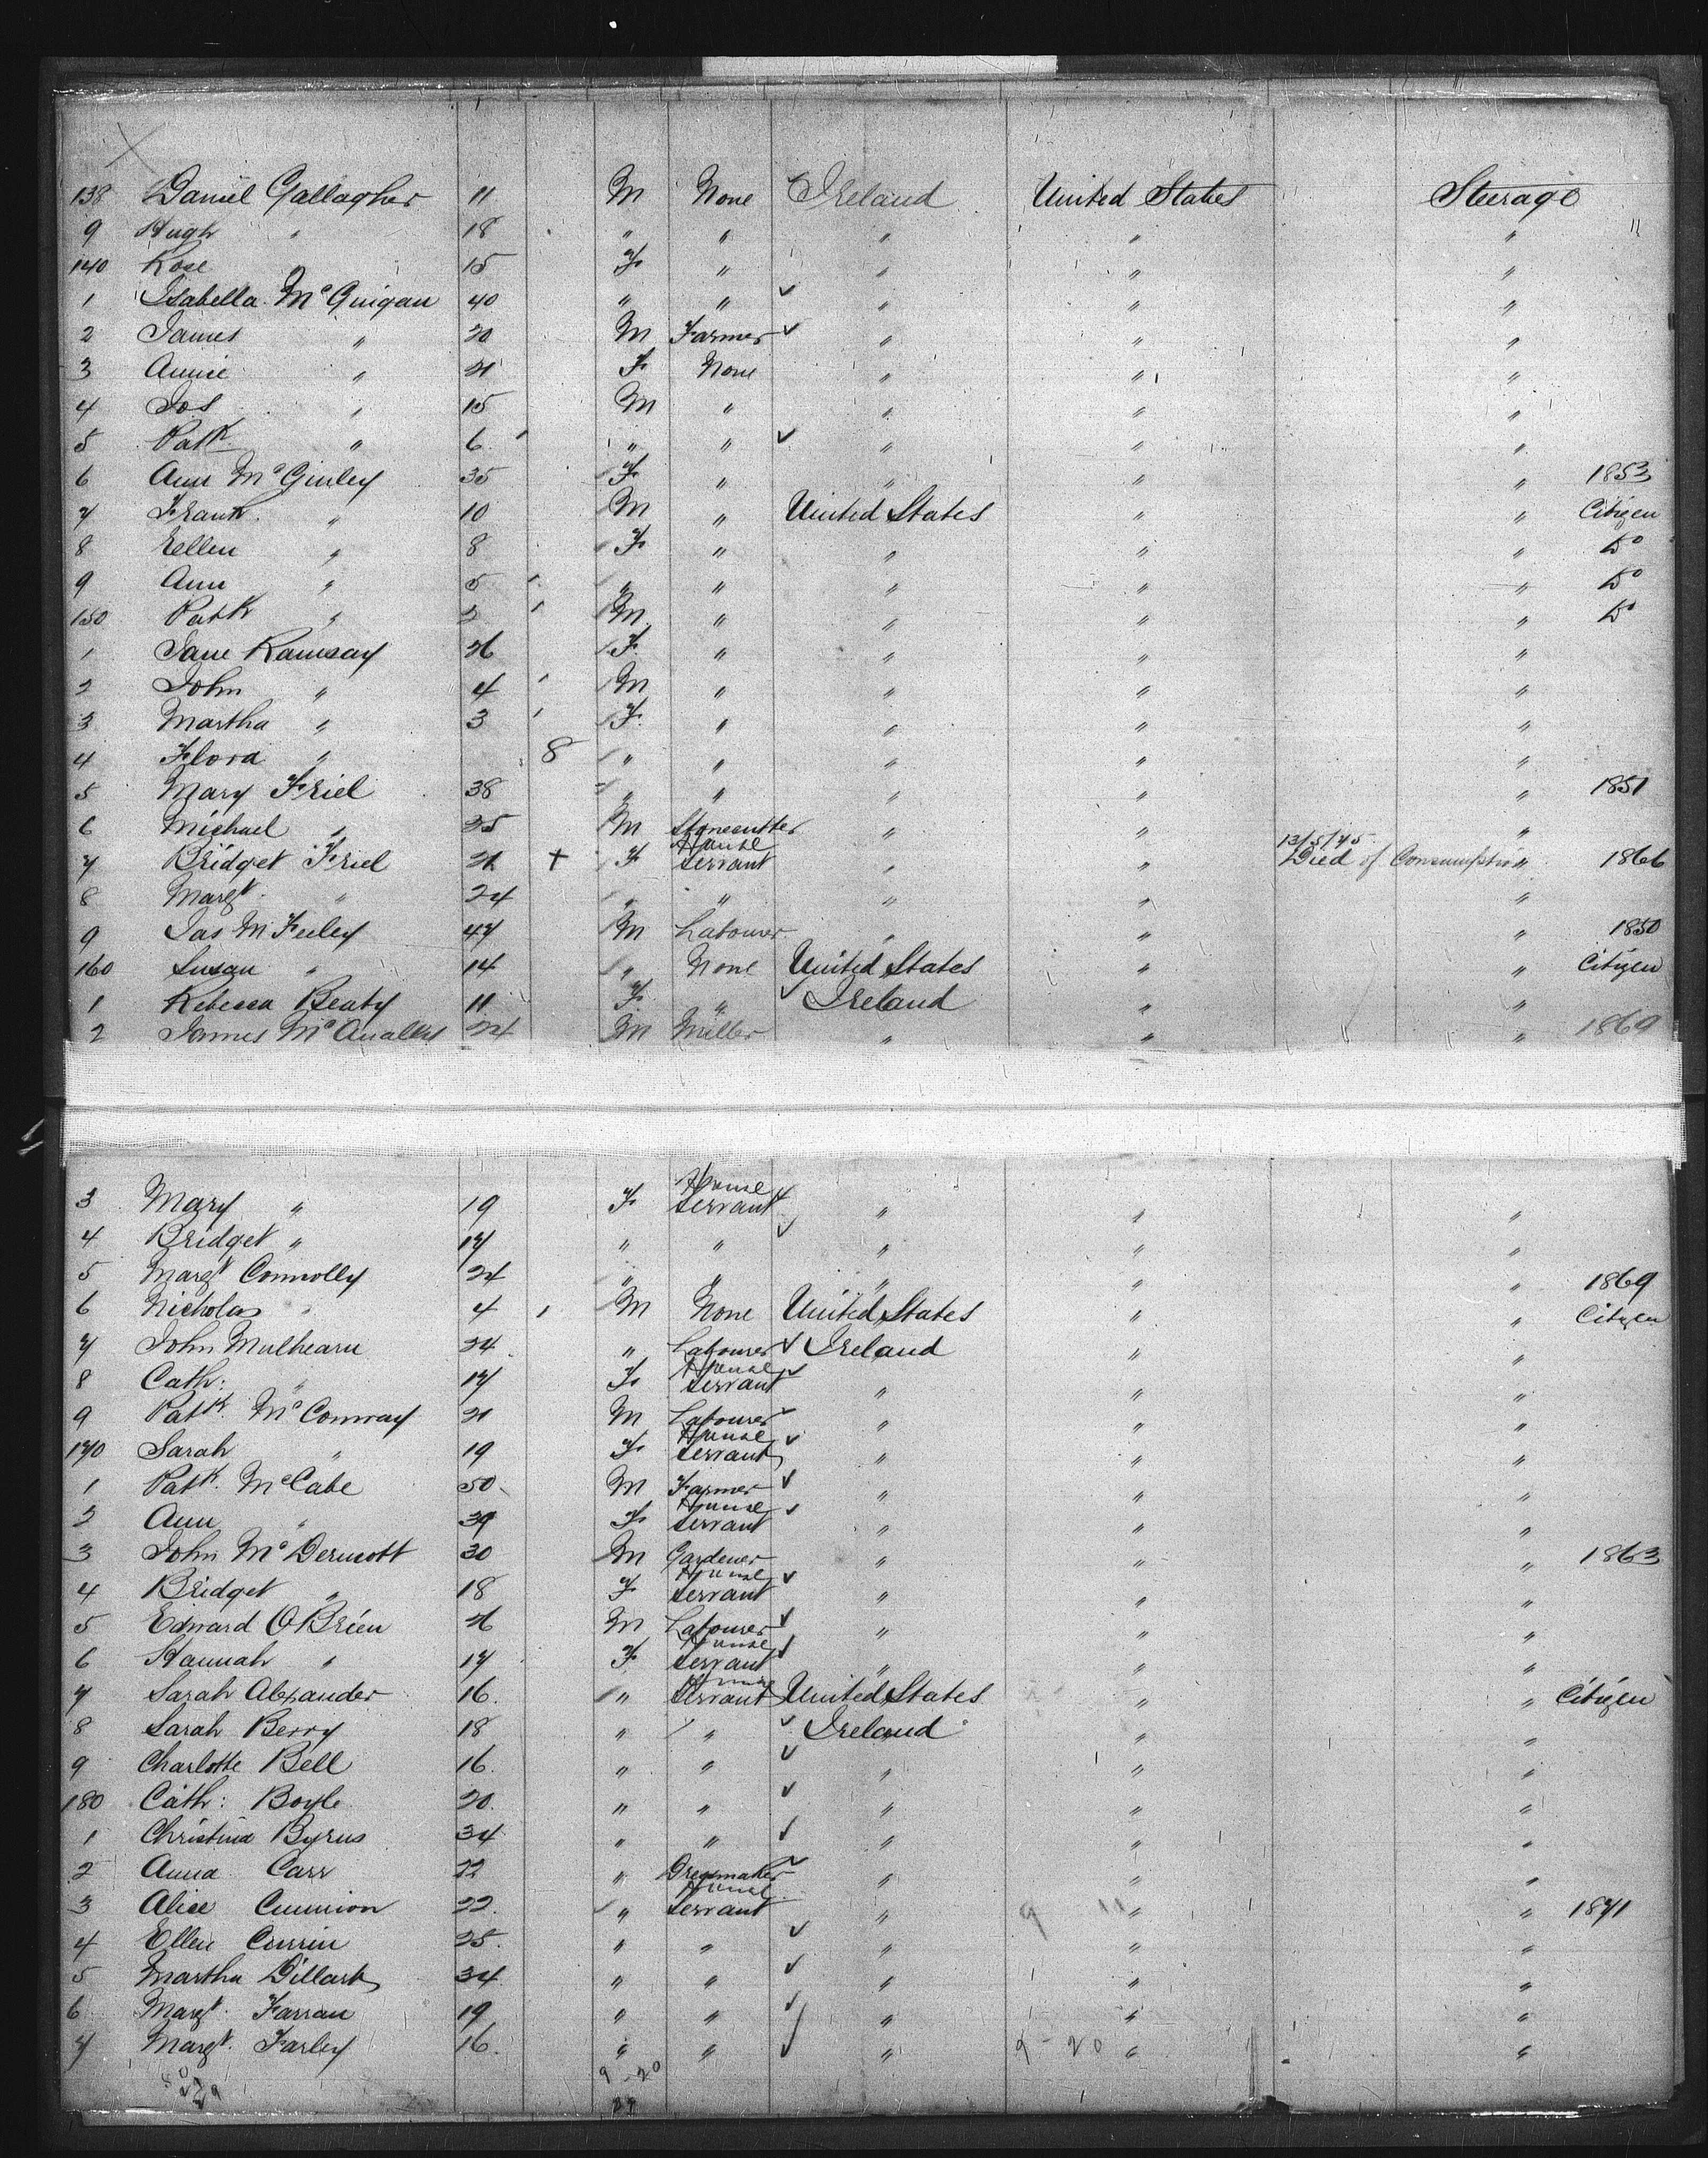 138 Daniel Gallagher 11 M None Ireland United States Steerage
9 Hugh " 18 " " " " " "
140 Rose " 15 F " " " "
1 Isabella McGuigan 40 " " " " "
2 James " 20 M Farmer " " "
3 Annie " 21 F None " " "
4 Jos " 15 M " " " "
5 Patk " 6 " " " " "
6 Ann McGinley 35 F " " " " 1853
7 Frank " 10 M " United States " " Citizen
8 Eellen " 8 F " " " " Do
9 Ann " 5 " " " " " Do
150 Patk " 2 M " " " " Do
1 Jane Ramsay 26 F " " " "
2 John " 4 M " " " "
3 Martha " 3 F " " " "
4 Flora " 8 " " " " "
5 Mary Friel 38 " " " " " 1851
6 Michael " 25 M Stonecutter " " "
7 Bridget Friel 21 + F House Servant " " 13/5/75 Died of Consumption " 1866
8 Margt " 24 " " " " "
9 Jas McFeeley 47 M Labourer " " " 1850
160 Susan " 14 " None United States " " Citizen
1 Rebecca Beaty 11 F " Ireland " "
2 James 24 M Miller " " " 1869
3 Mary " 19 F House Servant " " "
4 Bridget " 17 " " " " "
5 Margt Connolly 24 " " " " " 1869
6 Nicholas " 4 M None United States " " Citizen
7 John Mulhearn 24 " Labourer Ireland " "
8 Cath: " 17 F House Servant " " "
9 Patk. McConway 21 M Labourer " " "
170 Sarah " 19 F House Servant " " "
1 Patk. McCabe 50 M Farmer " " "
2 Ann " 39 F House Servant " " "
3 John McDermott 30 M Gardener " " " 1863
4 Bridget " 18 F House Servant " " "
5 Edward OBrien 26 M Labourer " " "
6 Hannah " 17 F House Servant " " "
7 Sarah Alexander 16 " House Servant United States " " Citizen
8 Sarah Berry 18 " " Ireland " "
9 Charlotte Bell 16 " " " " "
180 Cath: Boyle 20 " " " " "
1 Christina Byrns 34 " " " " "
2 Anna Carr 22 " Dressmaker " " "
3 Alice Cunnion 22 " House Servant " 9 11 " " 1871
4 Ellen Currin 25 " " " " "
5 Martha 34 " " " " "
6 Margt. Farran 19 " " " " "
7 Margt. Farley 16 " " " 9-20 " "
9-20